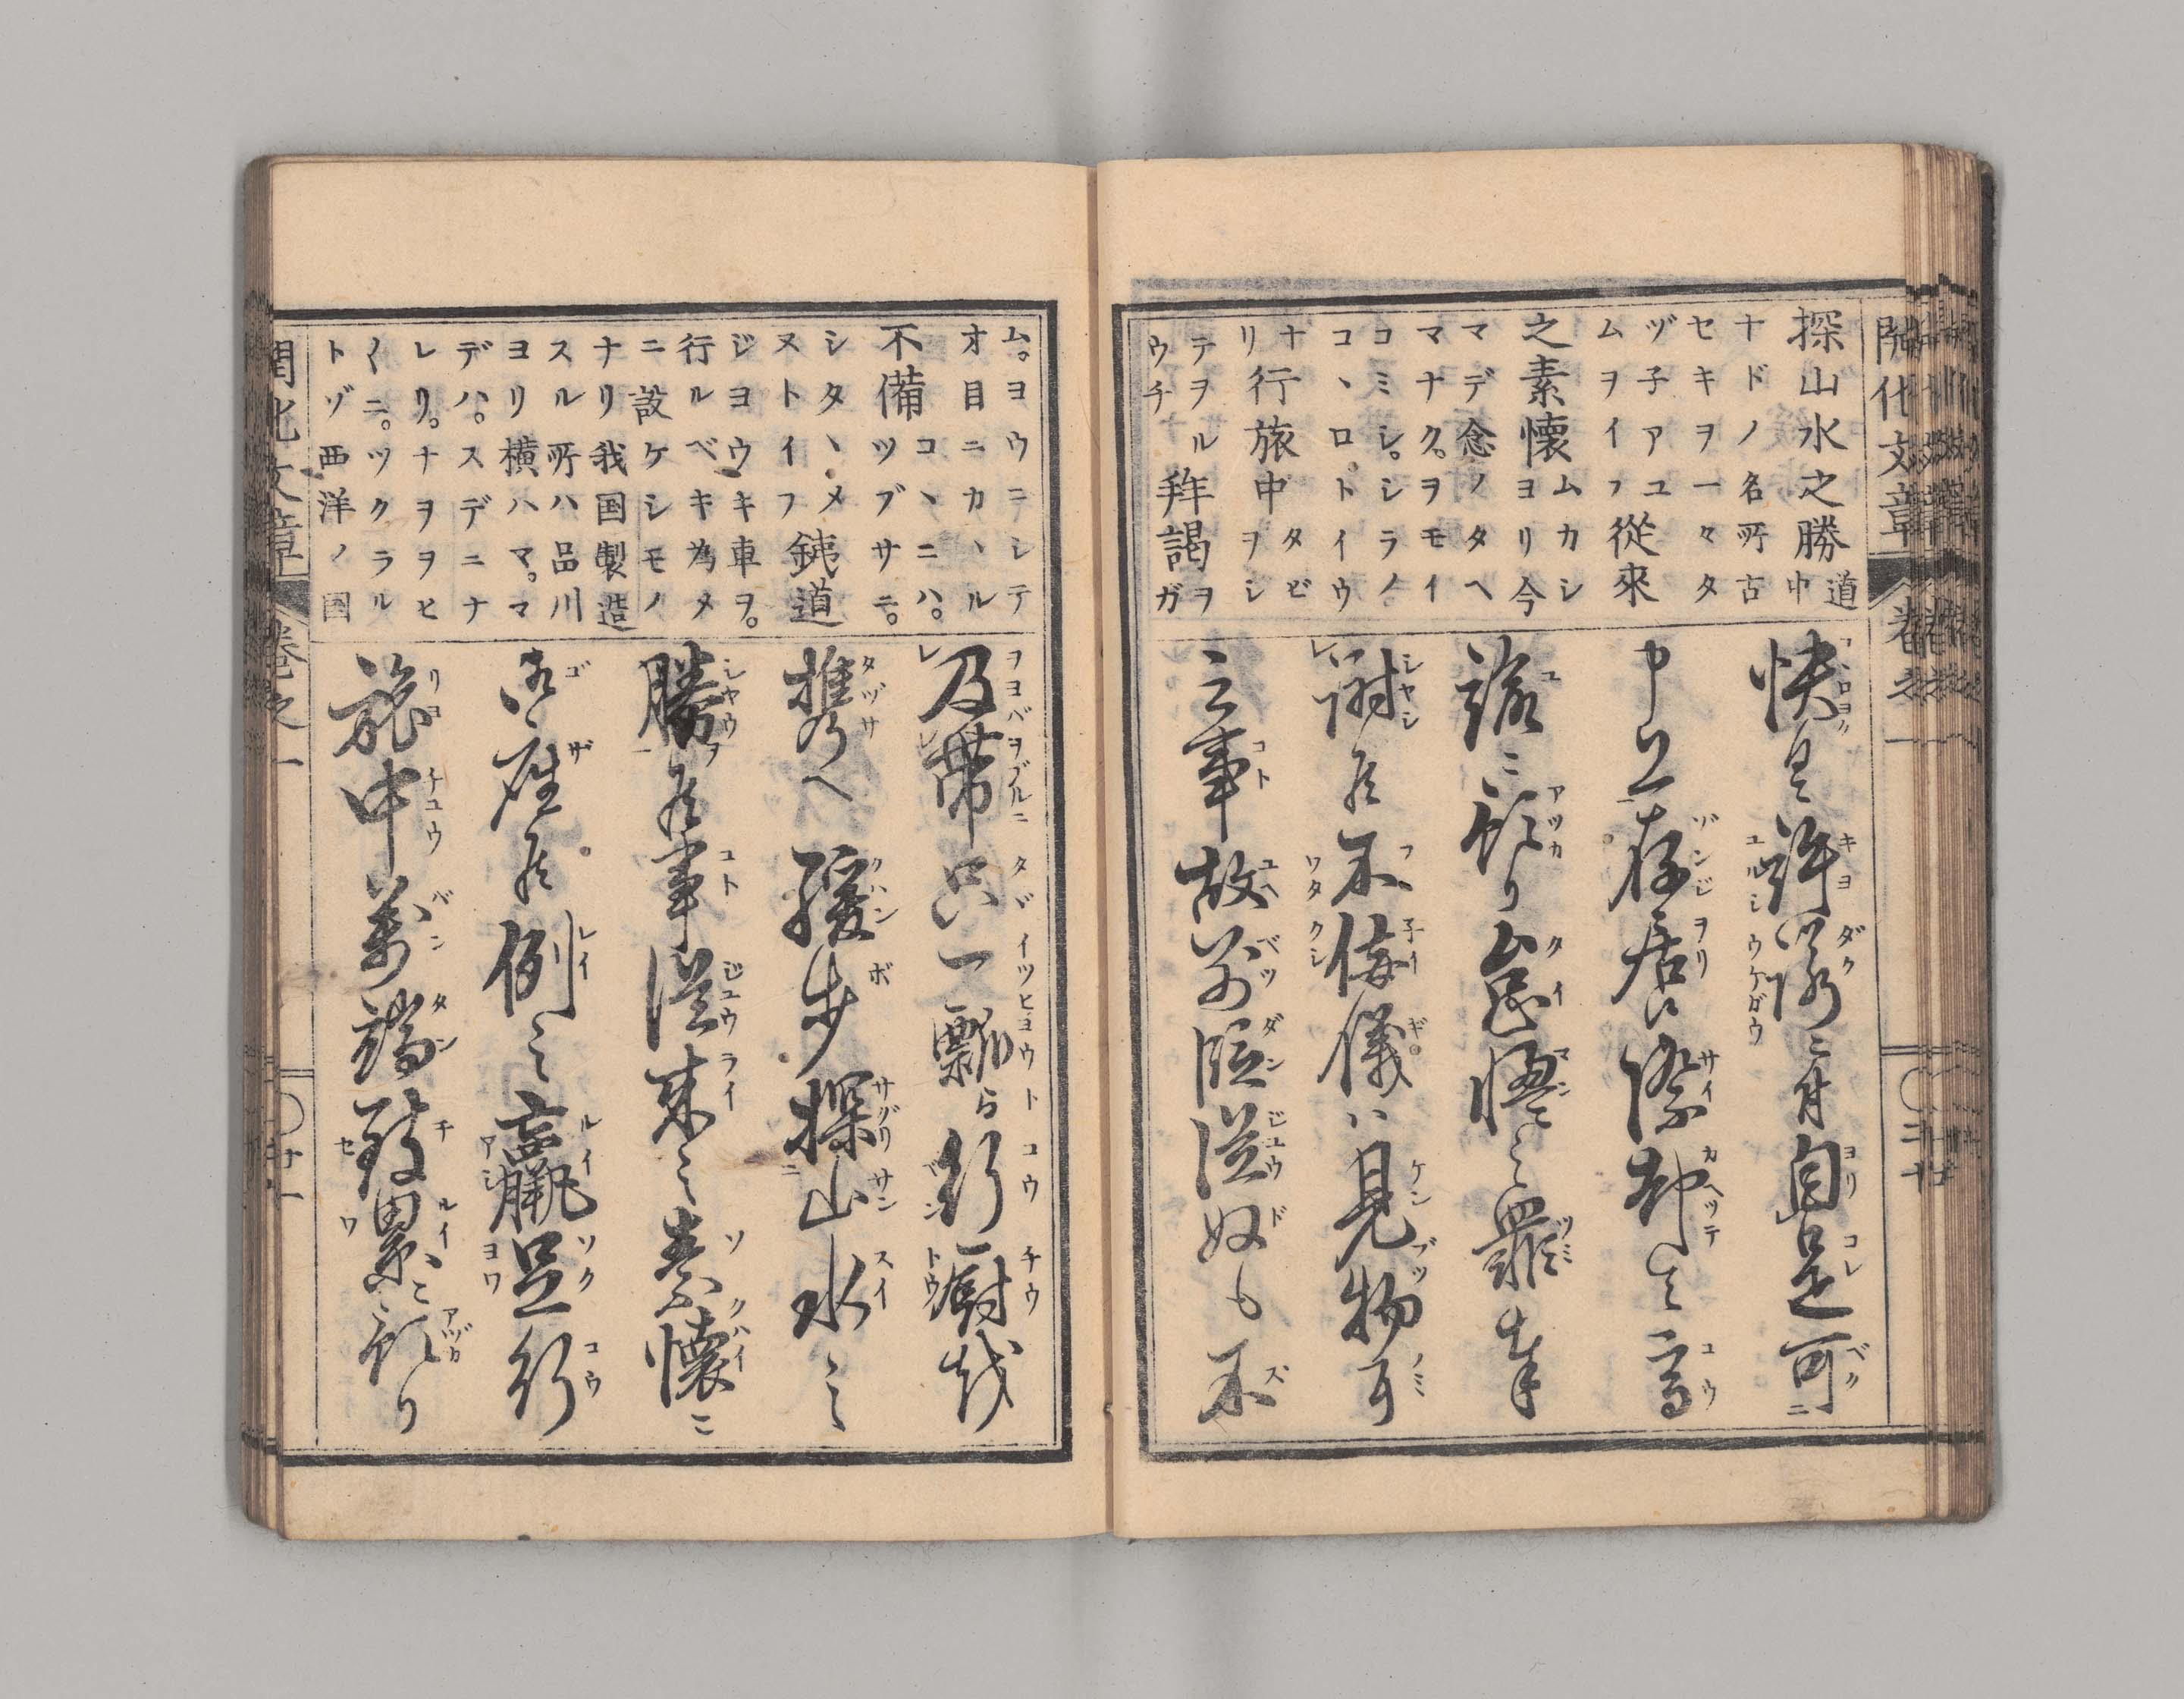 開化文章
巻之一
探山水之勝 道中
ナドノ名所古
セキヲ一々タ
ヅ子アユ
ムヲイフ 從來
之素懐 ムカシヨリ今
マデ念ノタヘ
マナク。ヲモイ
コミシ。シラノ
コヽロ。トイウ
ナ 行旅中 タビ
リ ヲシ
テヲル 拜謁 ヲ
ウチ ガ
快く許諾ニ付自是可
申上存居候際却て高
諭ニ預り怠慢之罪奉
謝候不侫儀ハ見物可
云事故別段従奴も不
ム。ヨウニシテ
オ目ニカヽル
不備 コヽニハ。ツブサニ。
シタヽメ
ヌトイフ 銕道
ジヨウキ車ヲ。
行ルベキ為メ
ニ設ケシモノ
ナリ我国製造
スル所ハ品川
ヨリ横ハマ。マ
デハ。スデニナ
レリ。ナヲヲヒ
〱ニ。ツクラル
トゾ西洋ノ国
及帯只一瓢与行厨越
携へ緩歩探山水之
勝候事従来之素懐ニ
御座候例之羸足行
旅中萬端致累ニ預り
開化文章
巻之一
廿一